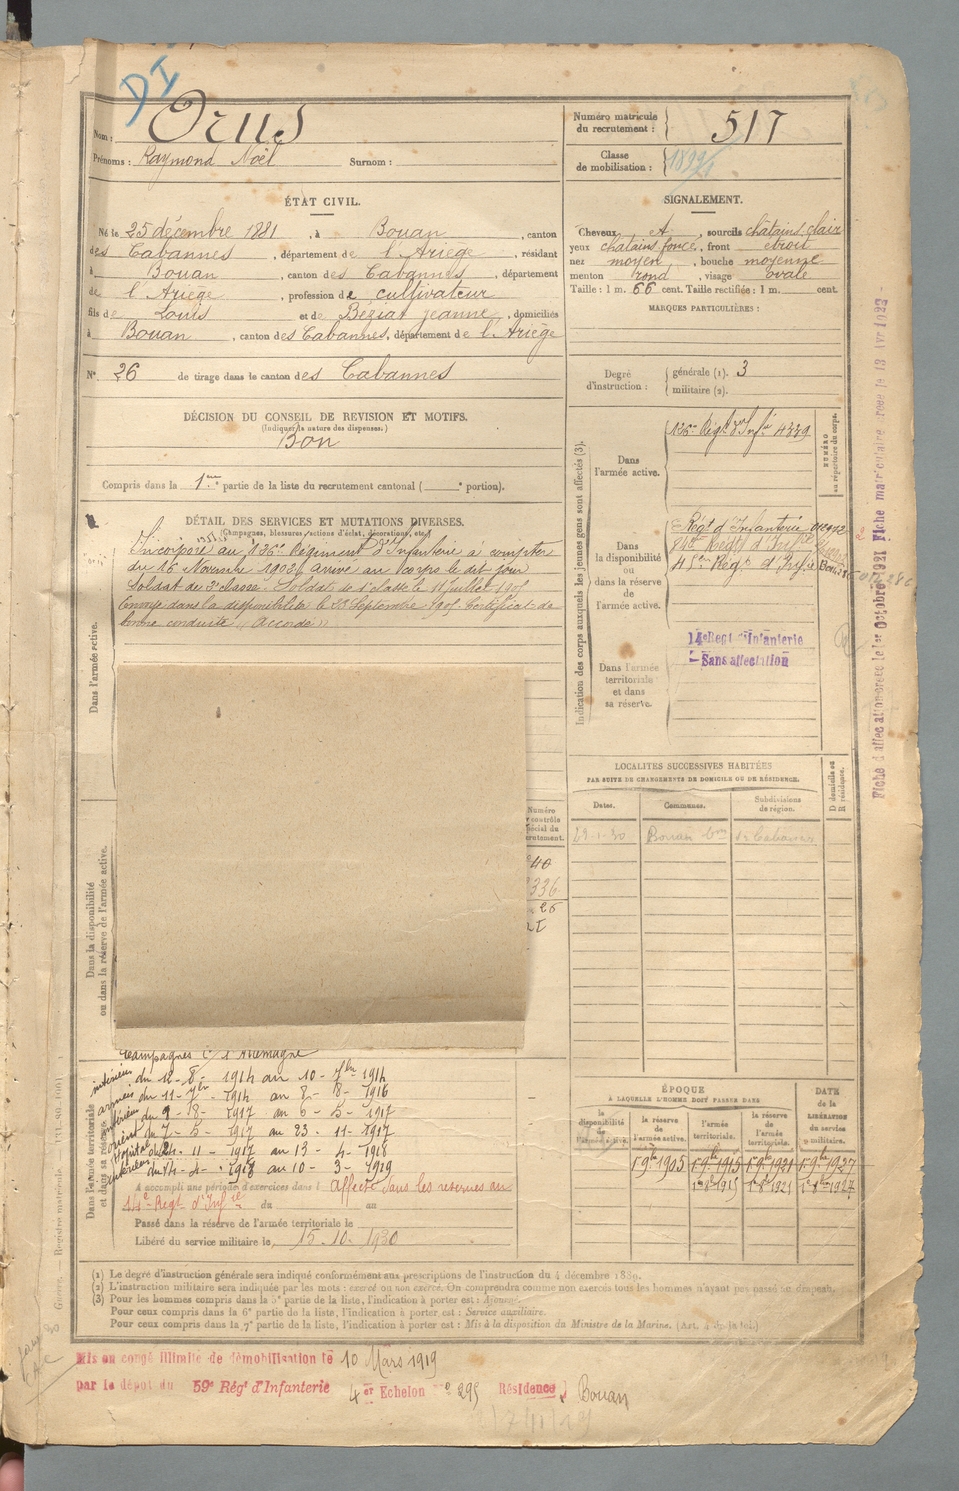 DI
Nom : Orus
Prénoms : Raymond Noël Surnom :
Numéro matricule du recrutement : 517
Classe de mobilisation :
ÉTAT CIVIL.
Né le 25 décembre 1881, à Bouan, canton
des Cabannes, département de l'Ariège, résidant
à Bouan, canton des Cabannes, département
de l'Ariège, profession de cultivateur
fils de Louis et de Béziat Jeanne, domiciliés
à Bouan, canton des Cabannes, département de l'Ariège
N° 26 de tirage dans le canton des Cabannes
SIGNALEMENT.
Cheveux A, sourcils châtains clair
yeux châtains foncé, front étroit
nez moyen, bouche moyenne
menton rond, visage ovale
Taille : 1 m. 66 cent. Taille rectifiée : 1 m. cent.
MARQUES PARTICULIÈRES :
Degré d'instruction : générale (1). 3
militaire (2).
DÉCISION DU CONSEIL DE REVISION ET MOTIFS.
(Indiquer la nature des dispenses.)
Bon
Compris dans la 1re partie de la liste du recrutement cantonal ( e portion).
DÉTAIL DES SERVICES ET MUTATIONS DIVERSES.
(Campagnes, blessures, actions d'éclat, décorations, etc.)
Incorporé au 126e Régiment d'Infanterie à compter
du 16 Novembre 1902, arrivé au corps le dit jour
Soldat de 2e classe. Soldat de 1e classe le 11 juillet 1905
Envoyé dans la disponibilité le 23 Septembre 1905 Certificat de
bonne conduite "Accordé"
Dans l'armée active.
Dans la disponibilité
ou dans la réserve de l'armée active.
Dans l'armée territoriale
et dans sa réserve.
Indication des corps auxquels les jeunes gens sont affectés (3).
Dans l'armée active.
126e Régt d'Infie 4339
NUMÉRO au répertoire du corps.
Dans la disponibilité ou dans la réserve de l'armée active.
Régt d'Infanterie 012972
Régt d'Infie
Régt d'Infie
Dans l'armée territoriale et dans sa réserve.
14e Regt d'Infanterie
Sans affectation
Fiche matriculaire
LOCALITÉS SUCCESSIVES HABITÉES
PAR SUITE DE CHANGEMENTS DE DOMICILE OU DE RÉSIDENCE.
Dates. Communes. Subdivisions de région. D domicile ou R résidence.
Bouan
Campagnes c/ l'Allemagne
intérieur du 12-8-1914 au 10-7bre 1914
armées du 11-7bre-1914 au 8-8-1916
intérieur du 9-8-1917 au 6-5-1917
orient du 7-5-1917 au 23-11-1917
hôpital du 24-11-1917 au 13-4-1918
intérieur du 14-4-1918 au 10-3-1919
A accompli une période d'exercices dans l affecté dans les réserves au
14e Régt d'Infie du au
Passé dans la réserve de l'armée territoriale le
Libéré du service militaire le 15-10-1930
ÉPOQUE
À LAQUELLE L'HOMME DOIT PASSER DANS
la disponibilité de l'armée active. la réserve de l'armée active. l'armée territoriale. la réserve de l'armée territoriale. DATE de la LIBÉRATION du service militaire.
1er 9bre 1905 1er 9bre 1915 1er 9bre 1921 1er 9bre 1927
1er 8bre 1915 1er 8bre 1921 1er 8bre 1927
(1) Le degré d'instruction générale sera indiqué conformément aux prescriptions de l'instruction du 4 décembre 1889.
(2) L'instruction militaire sera indiquée par les mots : exercé ou non exercé. On comprendra comme non exercés tous les hommes n'ayant pas passé au drapeau.
(3) Pour les hommes compris dans la 5e partie de la liste, l'indication à porter est : Ajourné.
Pour ceux compris dans la 6e partie de la liste, l'indication à porter est : Service auxiliaire.
Pour ceux compris dans la 7e partie de la liste, l'indication à porter est : Mis à la disposition du Ministre de la Marine. (Art. 4 de la loi.)
Mis en congé illimité de démobilisation le 10 Mars 1919
par le dépôt du 59e Régt d'Infanterie 4er Echelon n° 295 Résidence Bouan